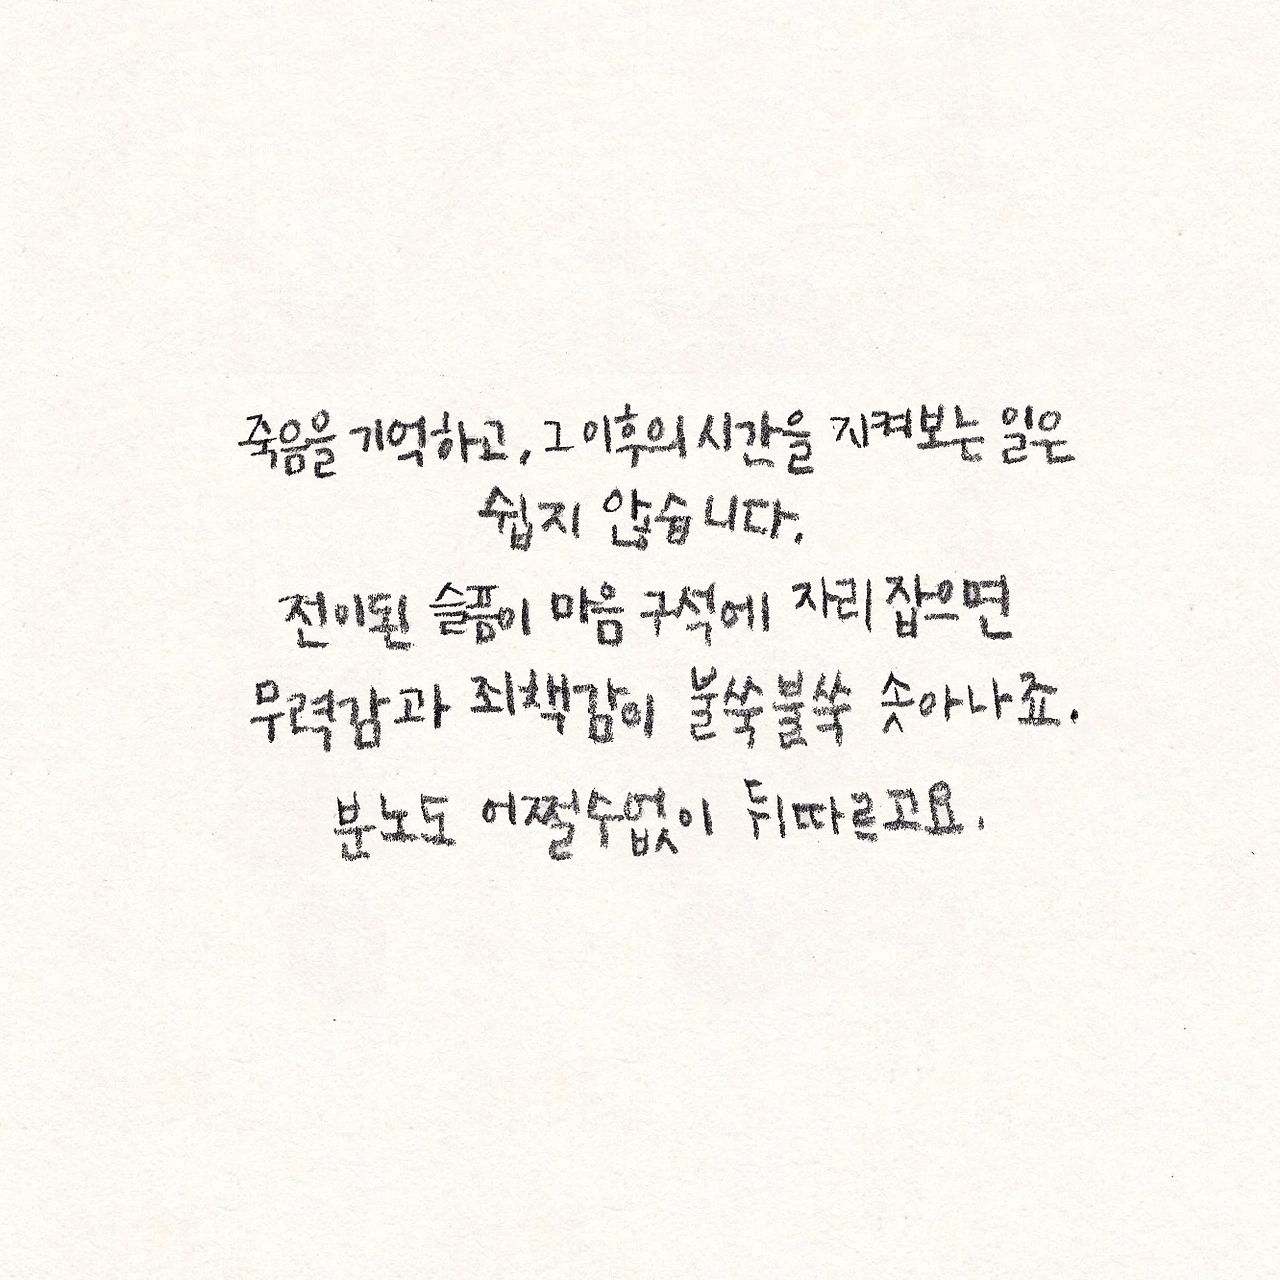 죽음을 기억하고, 그 이후의 시간을 지켜보는 일은
쉽지 않습니다.
전이된 슬픔이 마음 구석에 자리 잡으면
무력감과 죄책감이 불쑥불쑥 솟아나죠.
분노도 어쩔수없이 뒤따르고요.